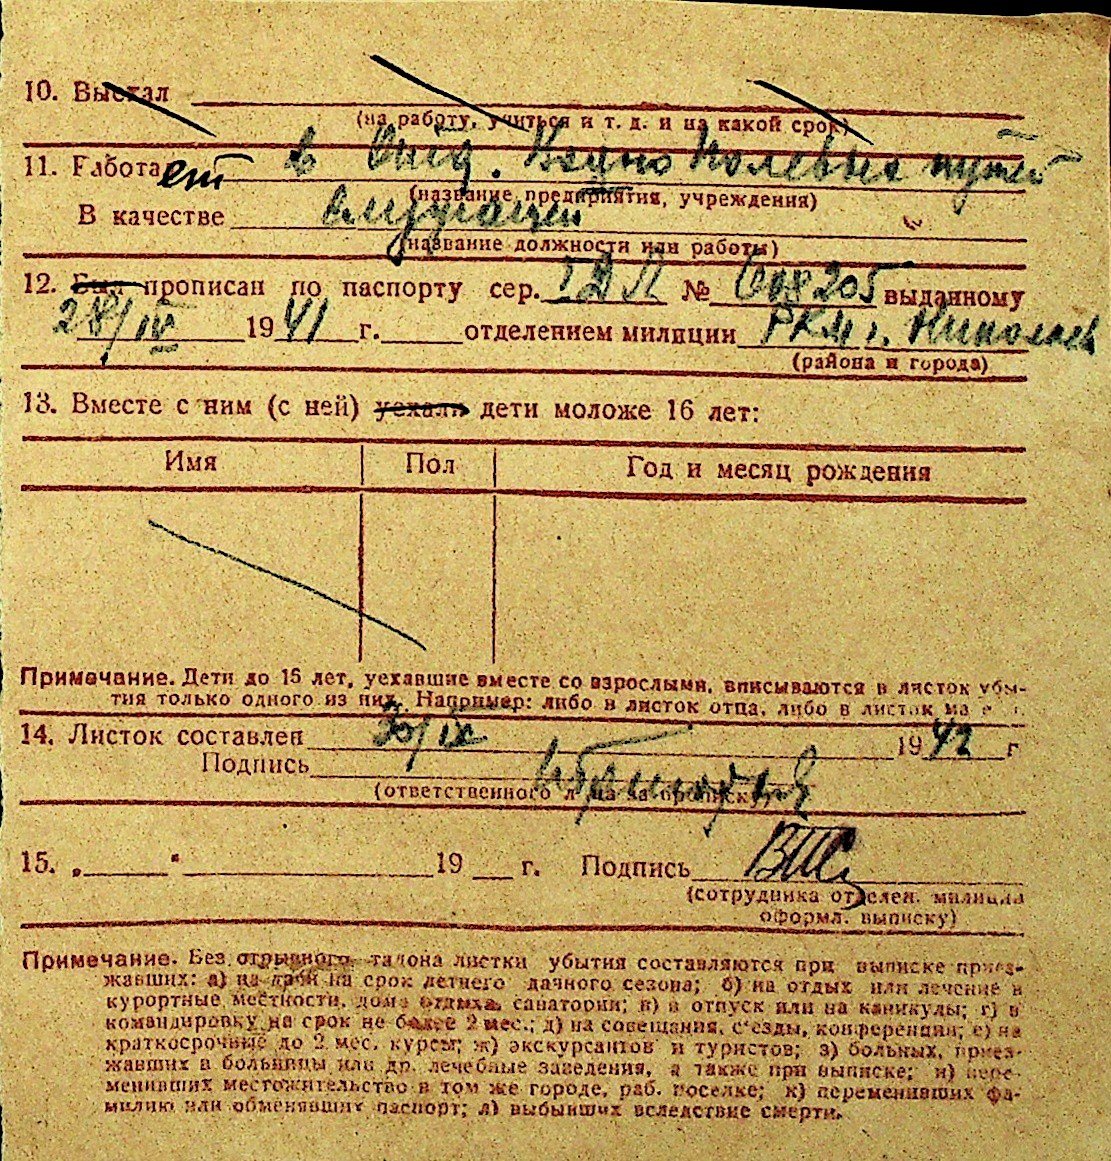 10. Выехал
(на работу, учиться и т. д. и на какой срок)
11. Работает в полевых путей
(название предприятия, учреждения)
В качестве
(название должности или работы)
12. Был прописан по паспорту сер. I ДЛ № 608205 выданному
28/IV 1941 г. отделением милиции РКМ г. Николаев
(района и города)
13. Вместе с ним (с ней) уехали дети моложе 16 лет:
Имя Пол Год и месяц рождения
Примечание. Дети до 16 лет, уехавшие вместе со взрослыми, вписываются в листок убы-
тия только одного из них. Например: либо в листок отца, либо в листок
14. Листок составлен 30/IX 1942 г
Подпись
(ответственного лица за прописку)
15. „ " 19 г. Подпись
(сотрудника отделен. милиции
оформл. выписку)
Примечание. Без отрывного талона листки убытия составляются при выписке приез-
жавших: а) на дачи на срок летнего дачного сезона; б) на отдых или лечение в
курортные местности, дома отдыха, санатории; в) в отпуск или на каникулы; г) в
командировку на срок не более 2 мес.; д) на совещания, с'езды, конференции; е) на
краткосрочные до 2 мес. курсы; ж) экскурсантов и туристов; з) больных, приез-
жавших в больницы или др. лечебные заведения, а также при выписке; и) пере-
менивших местожительство в том же городе, раб. поселке; к) переменивших фа-
милию или обменявших паспорт; л) выбывших вследствие смерти.